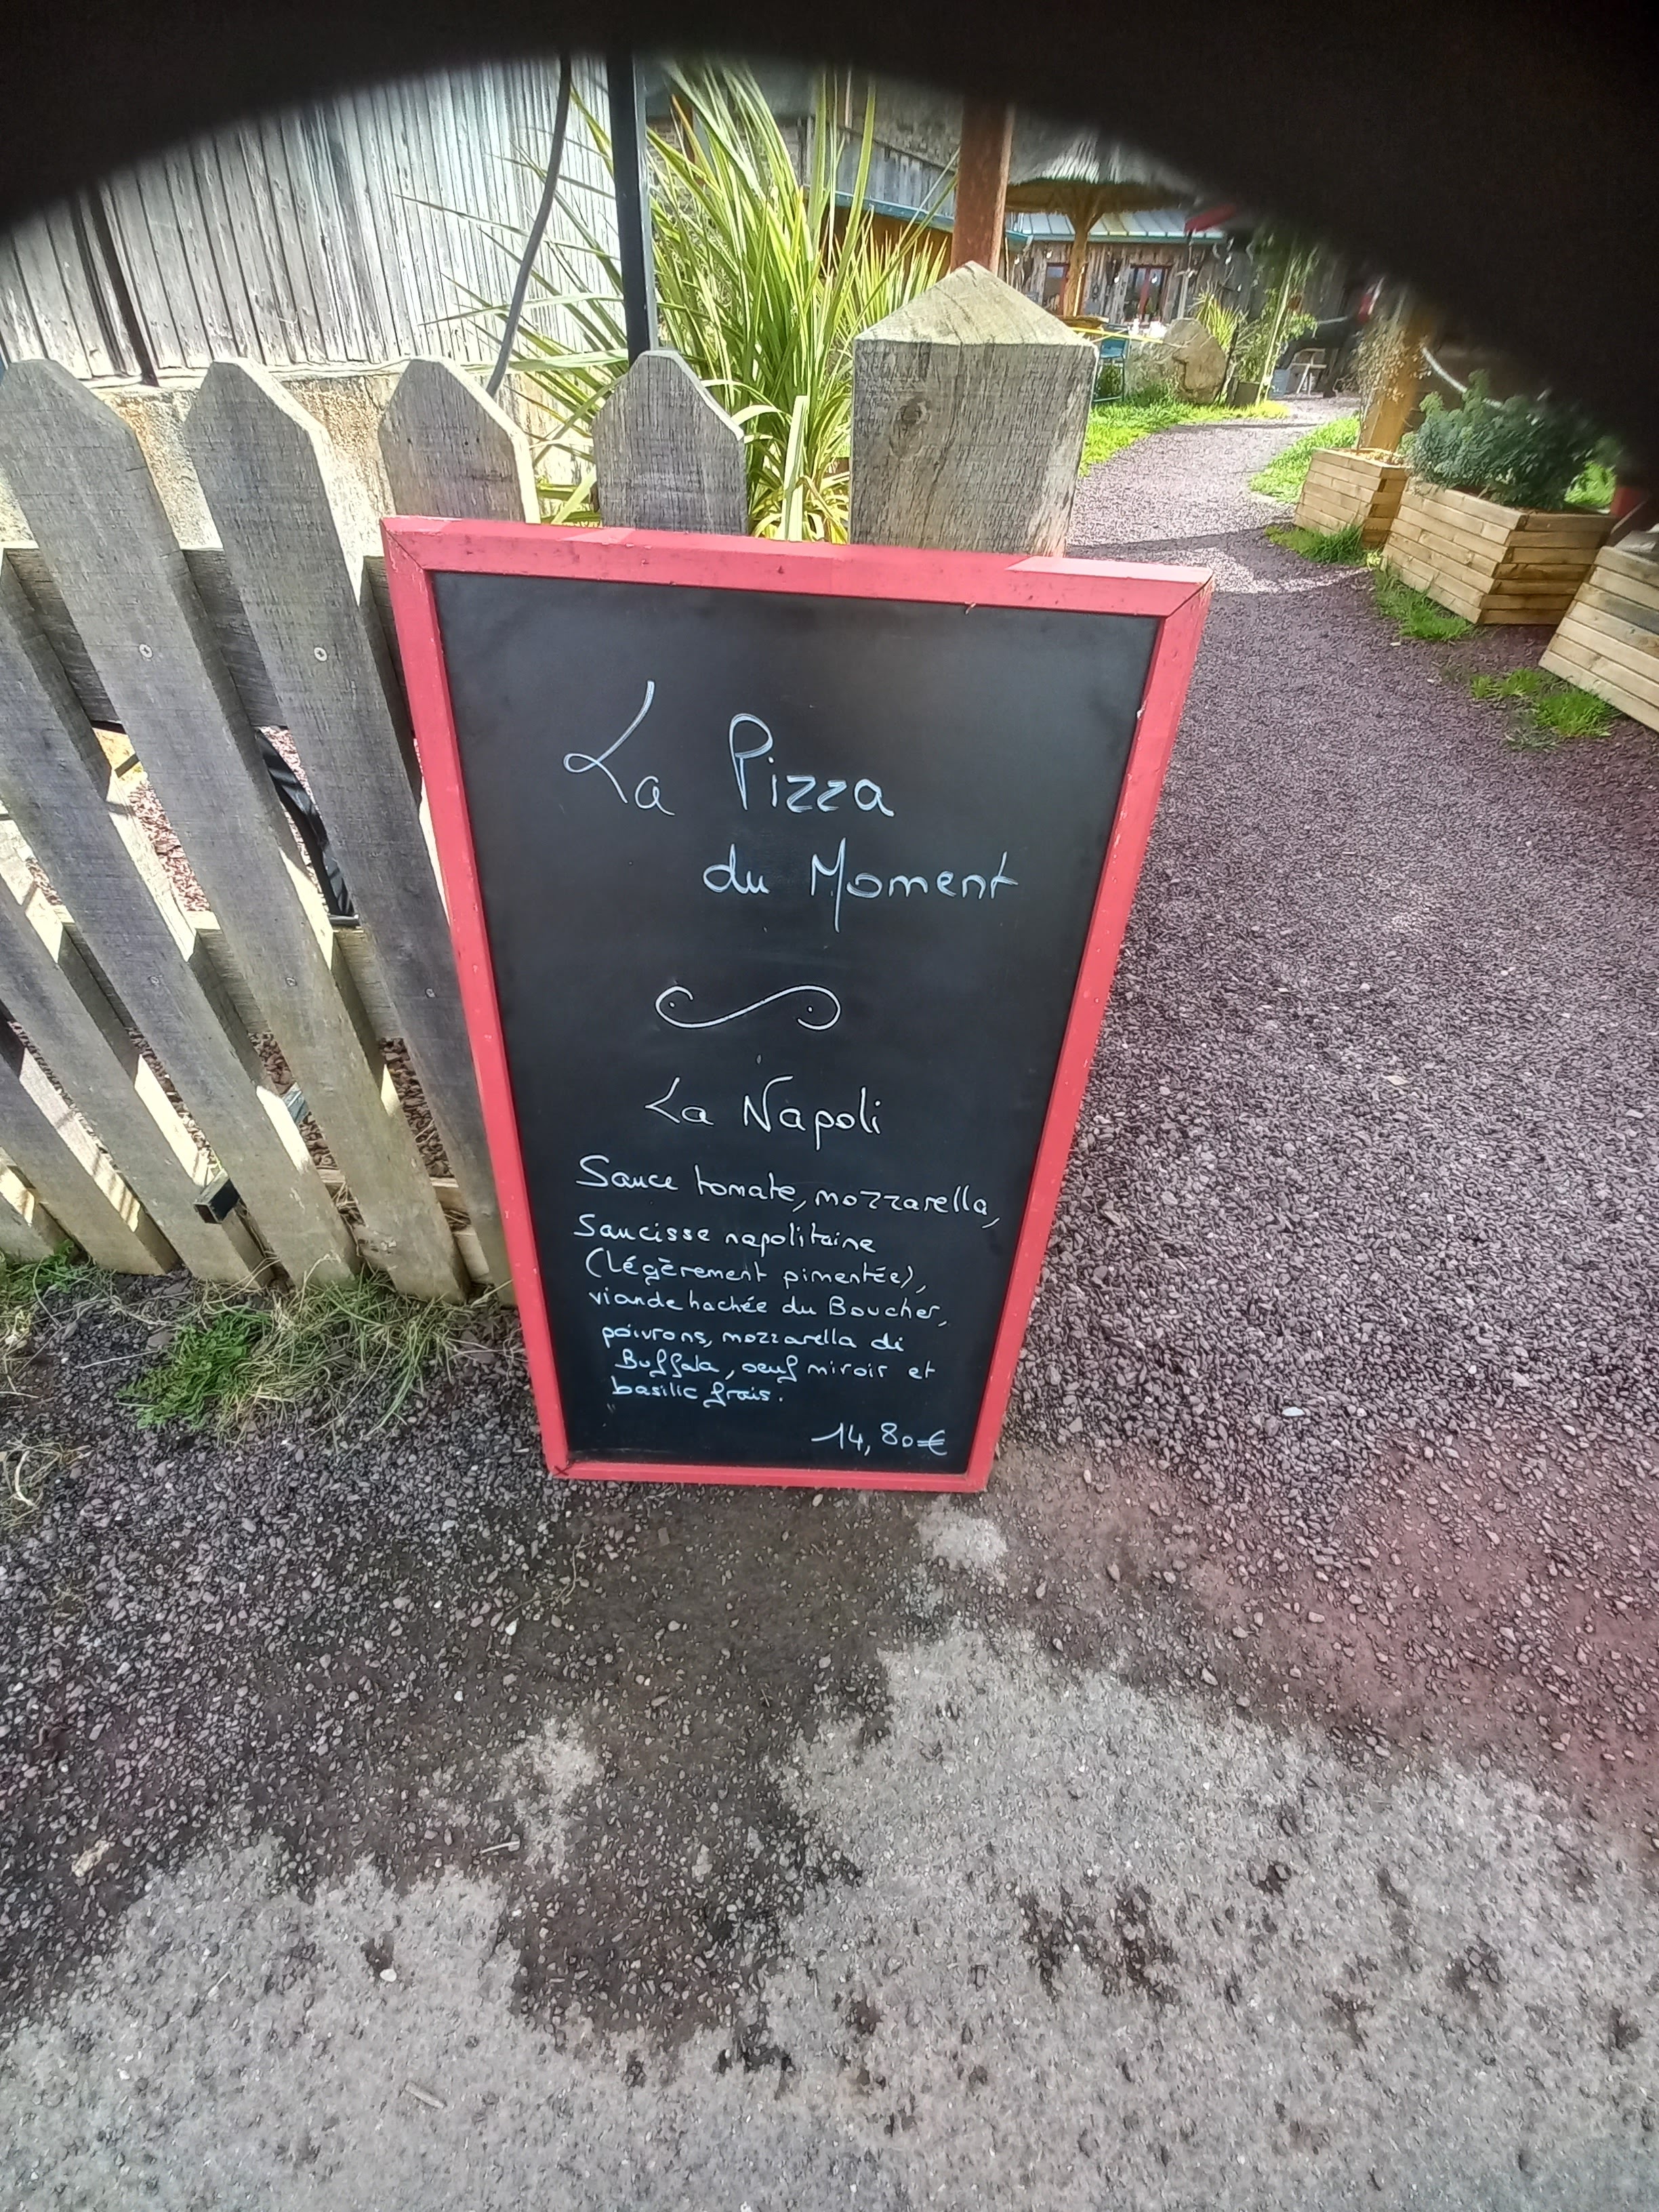 La Pizza
du Moment
La Napoli
Sauce tomate, mozzarella,
Saucisse napolitaine
(Légèrement pimentée),
viande hachée du Boucher,
poivrons, mozzarella di
Buffala, oeuf miroir et
basilic frais.
14,80€